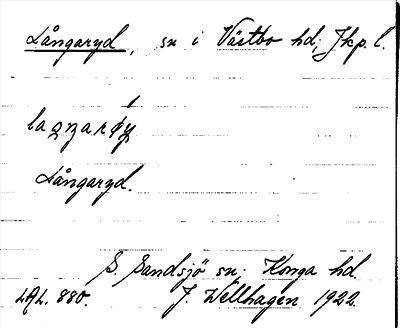 Långaryd, sn i Västbo hd, Jkp. l.
Långaryd.
S. Sandsjö sn, Konga hd.
LAL. 880. J. Wellhagen 1922.